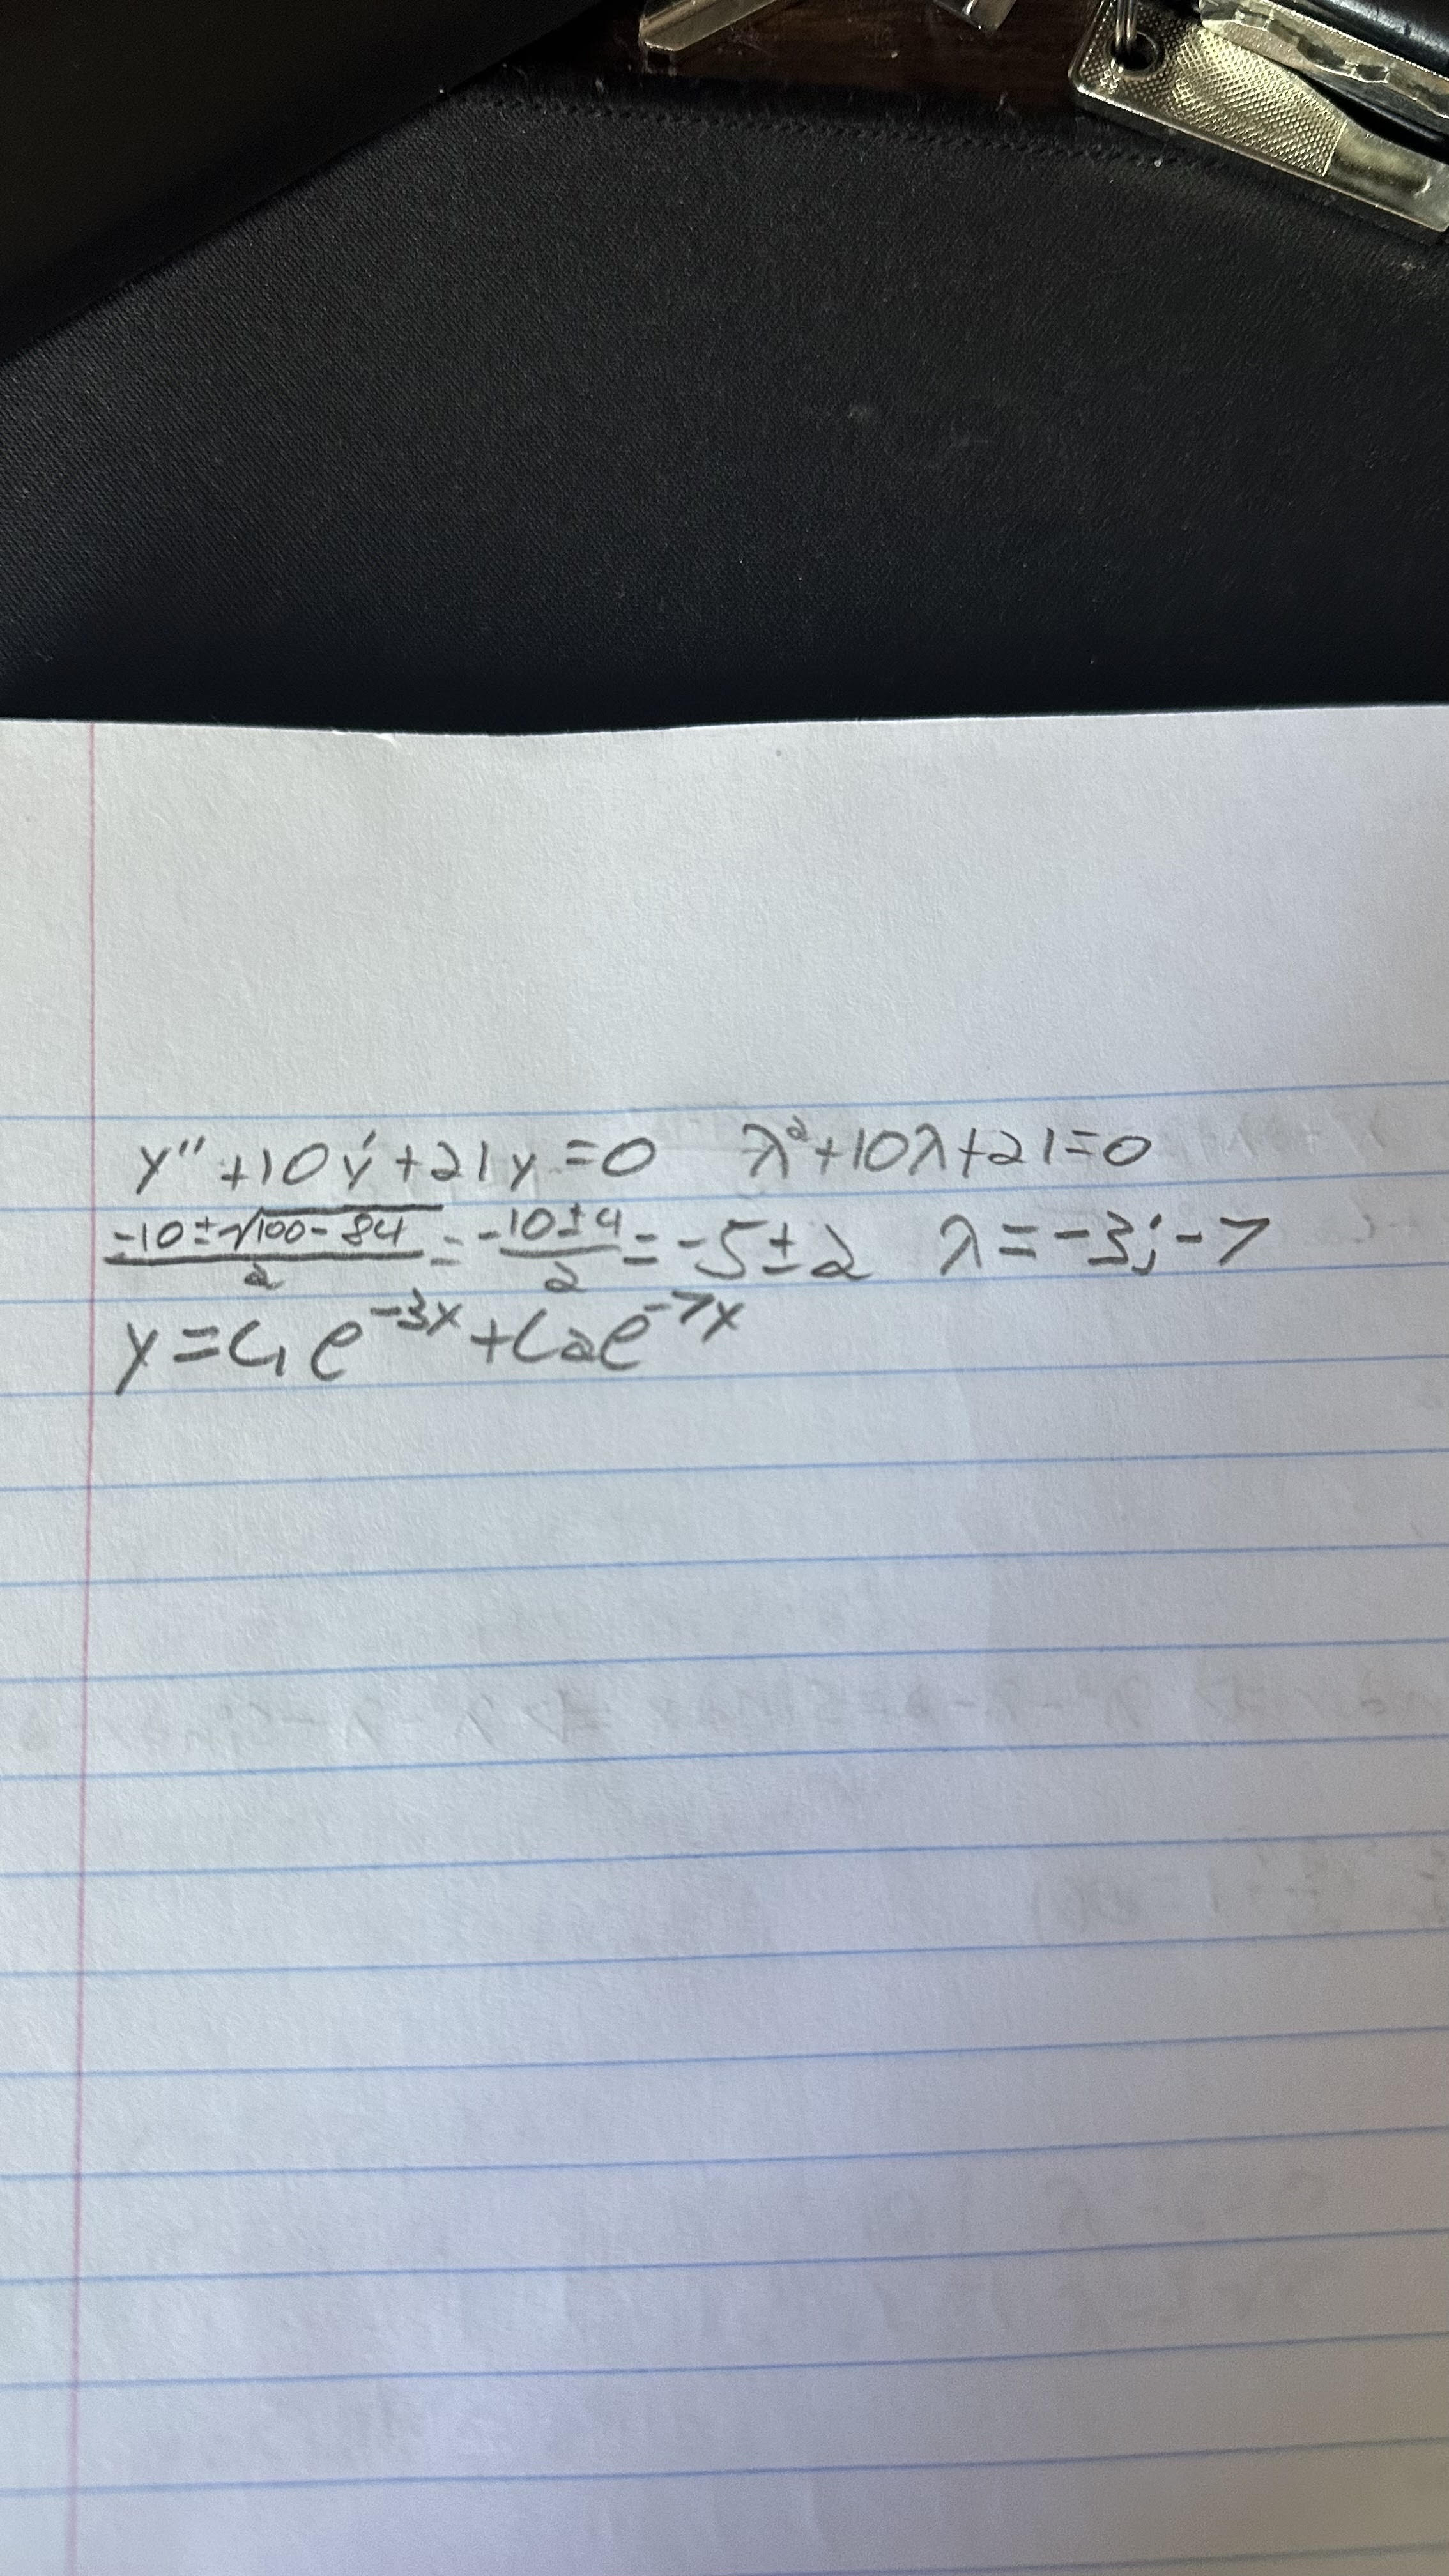 y'' + 10y' + 21y = 0   λ² + 10λ + 21 = 0
(-10 ± √(100 - 84))/2 = (-10 ± 4)/2 = -5 ± 2   λ = -3; -7
y = C₁e^(-3x) + C₂e^(-7x)